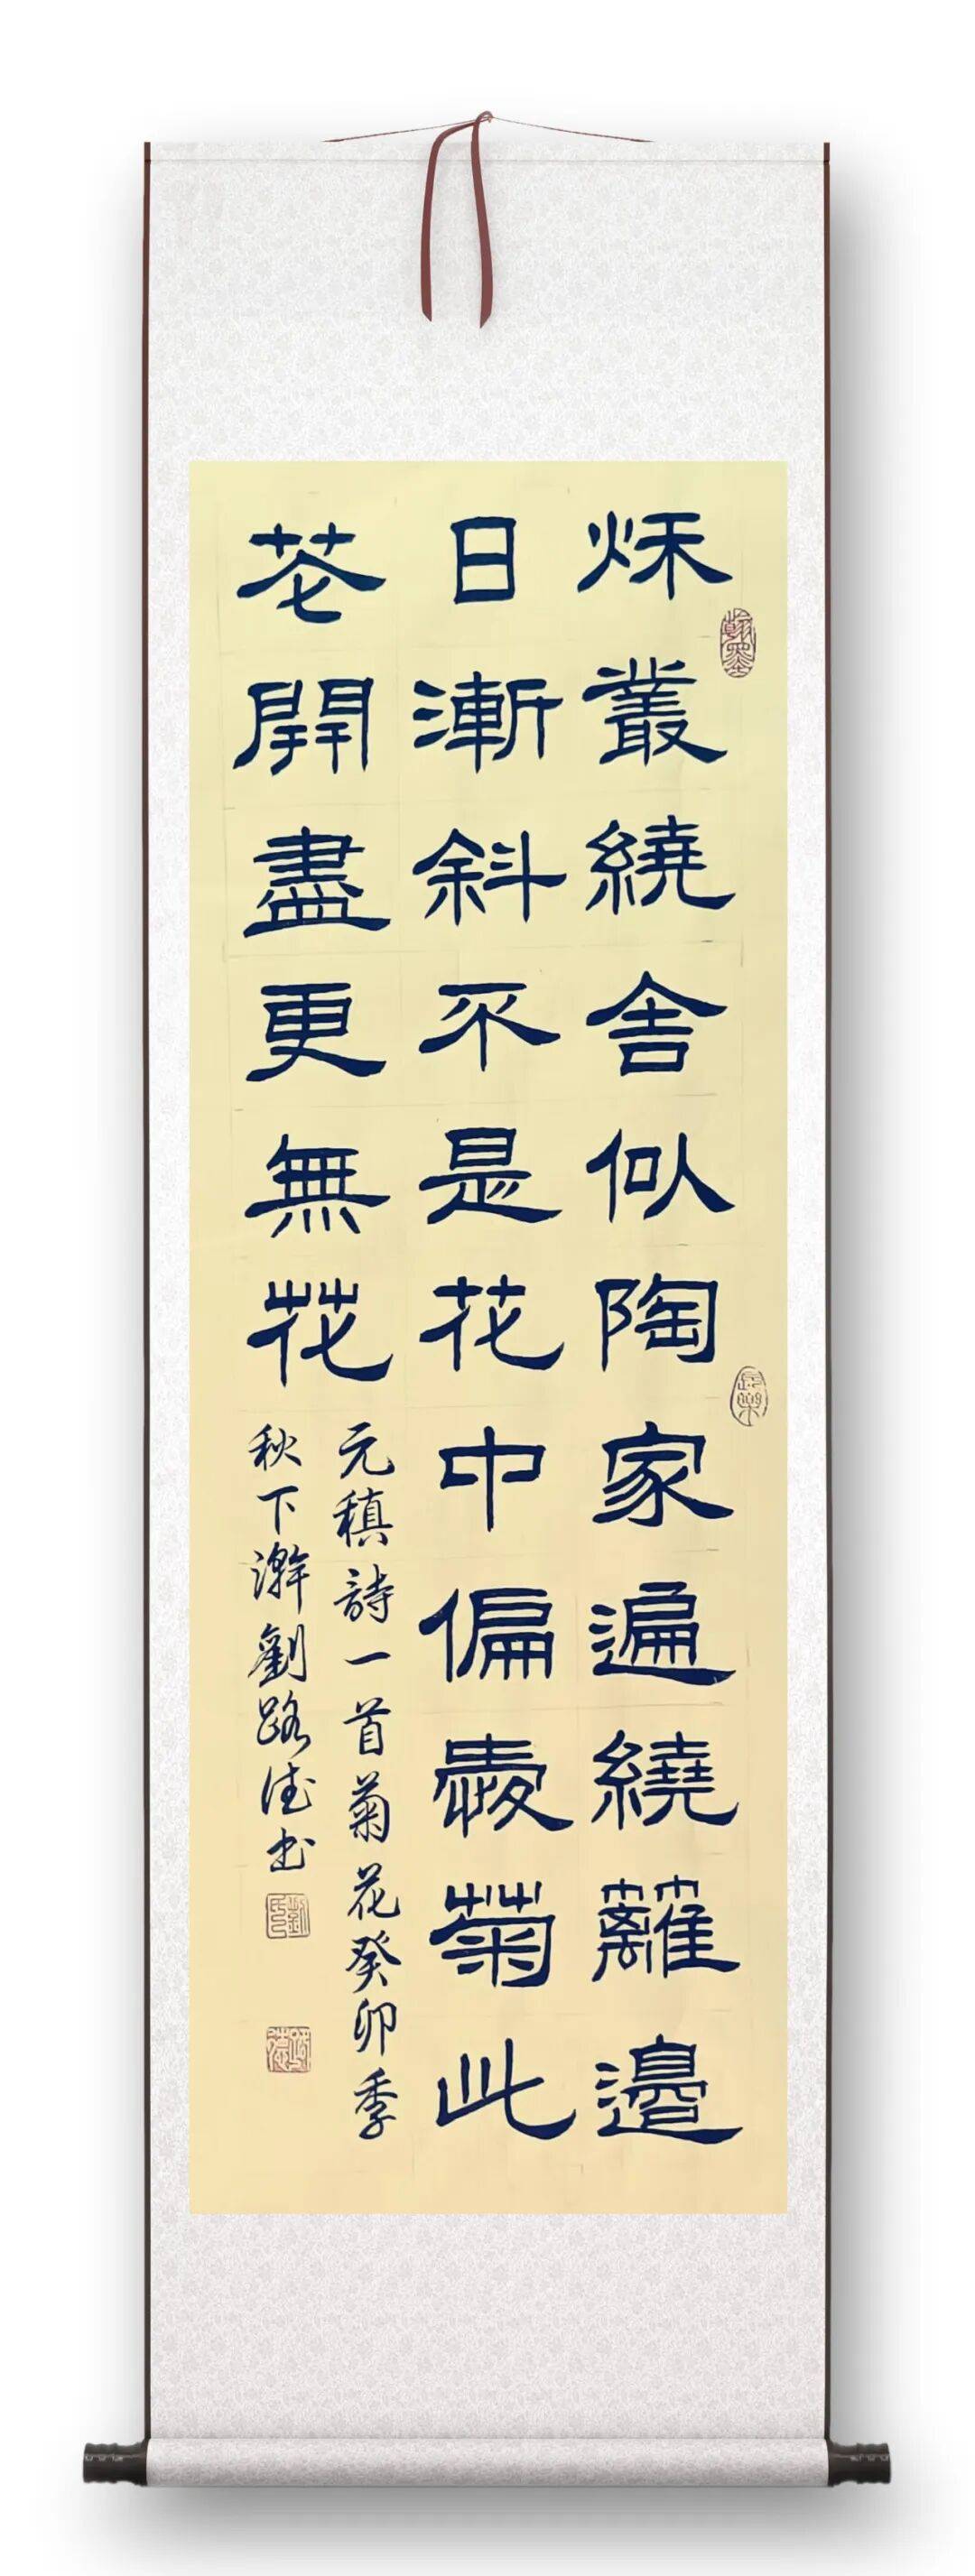 秌叢繞舍似陶家遍繞籬邊
日漸斜不是花中偏愛菊此
花開盡更無花
元稹詩一首菊花癸卯季
秋下澣劉路德书
翰墨
長樂